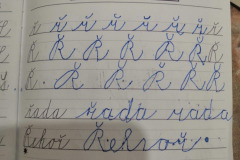 ř ř ř ř ř ř ř ř
Ř Ř Ř Ř Ř Ř Ř
Ř. Ř Ř Ř Ř Ř Ř
řada řada řada
Řehoř Řehoř.